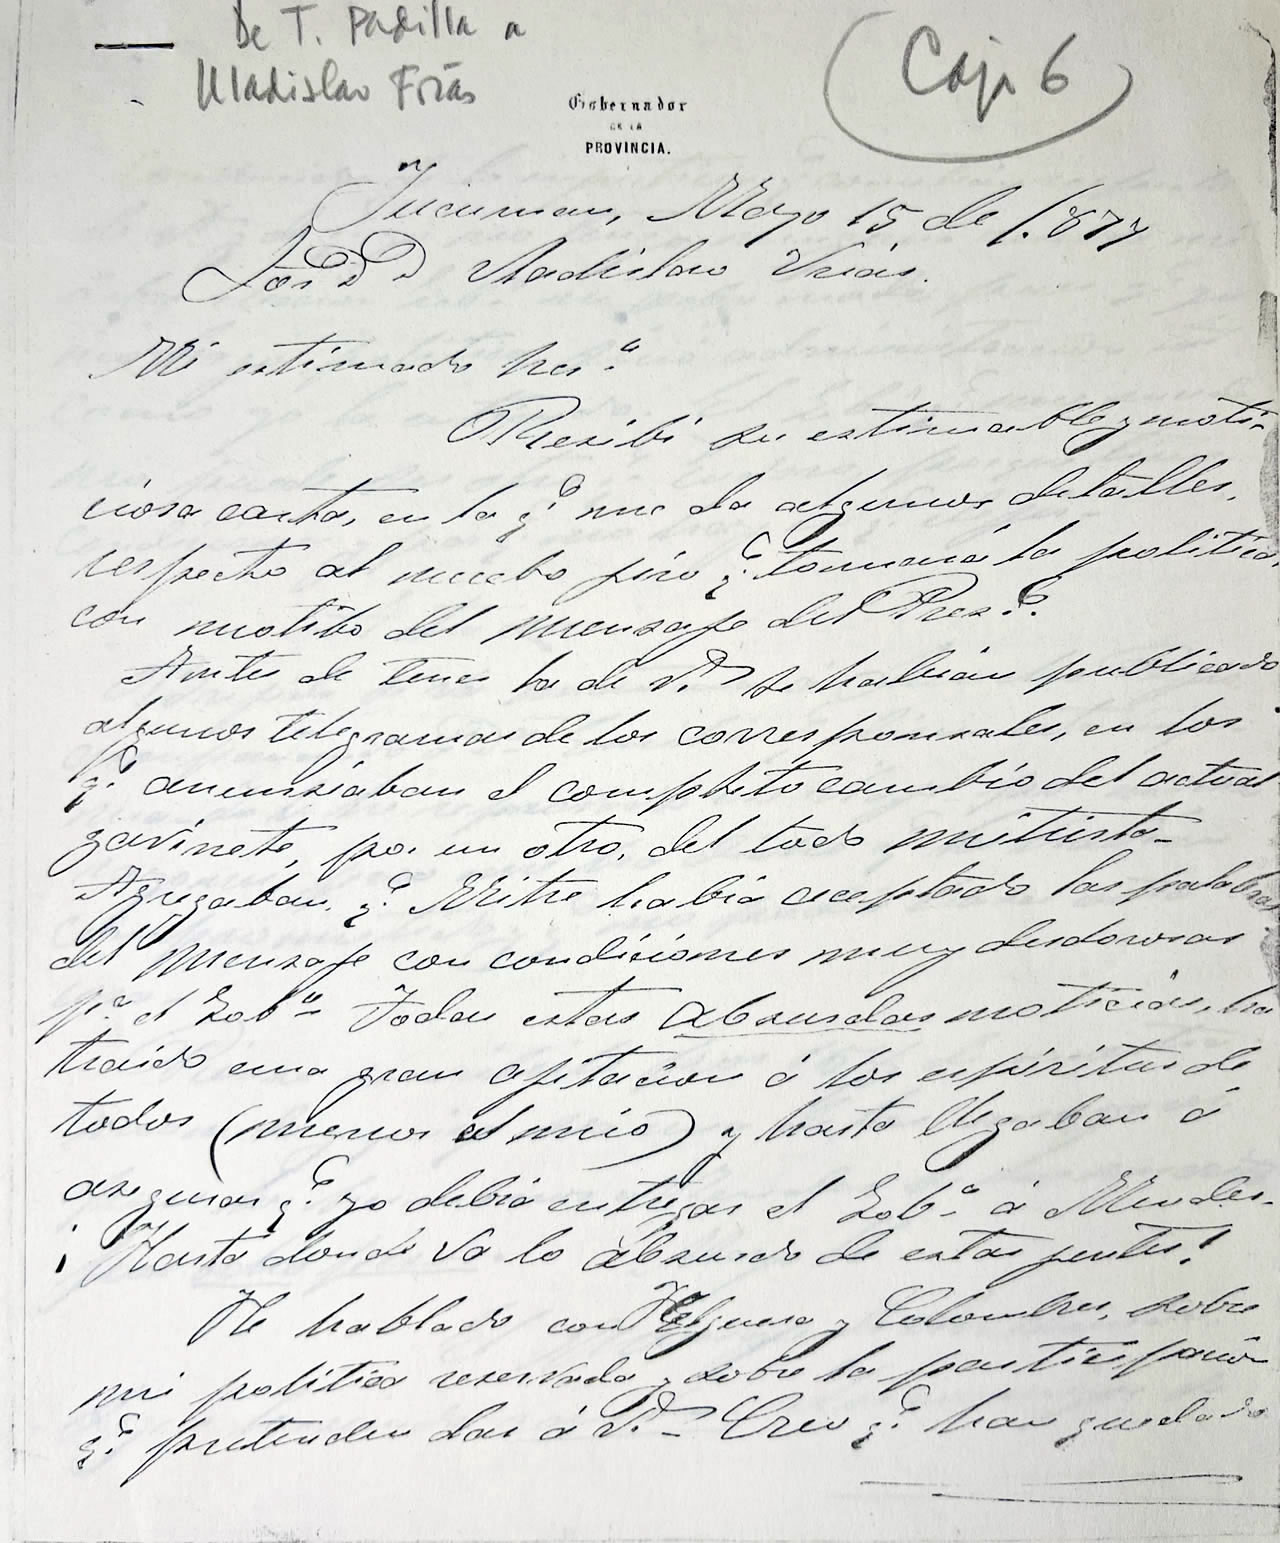 De T. Padilla a
Uladislao Frías
Caja 6
Gobernador
DE LA
PROVINCIA.
Tucuman, Mayo 15 de 1.877
Sor D D Uladislao Frias.
Mi estimado her.º
Recibi su estimable y noti-
ciosa carta, en la q.e me da algunos detalles,
respecto al nuebo jiro q.e tomará la politica,
con motibo del mensaje del Prez.te
Antes de tener la de V. se habian publicado
algunos telegramas de los corresponsales, en los
q.e anunsiaban el completo cambio del actual
gavinete, por un otro, del todo mitrista-
Agregaban, q.e Mitre habia aceptado las palabras
del mensaje con condiciones muy desdorosas
p.a el Gob.no Todas estas absurdas noticias, ha
traido una gran ajitacion á los espiritus de
todos (menos el mio) y hasta llegaban á
asegurar q.e yo debia entregar el Gob.o á Mendes-
¡Hasta donde va lo absurdo de estas jentes!
He hablado con Helguera y Colombres, sobre
mi politica reservada y sobre la participacion
q.e pretenden dar á V. - Creo q.e han quedado